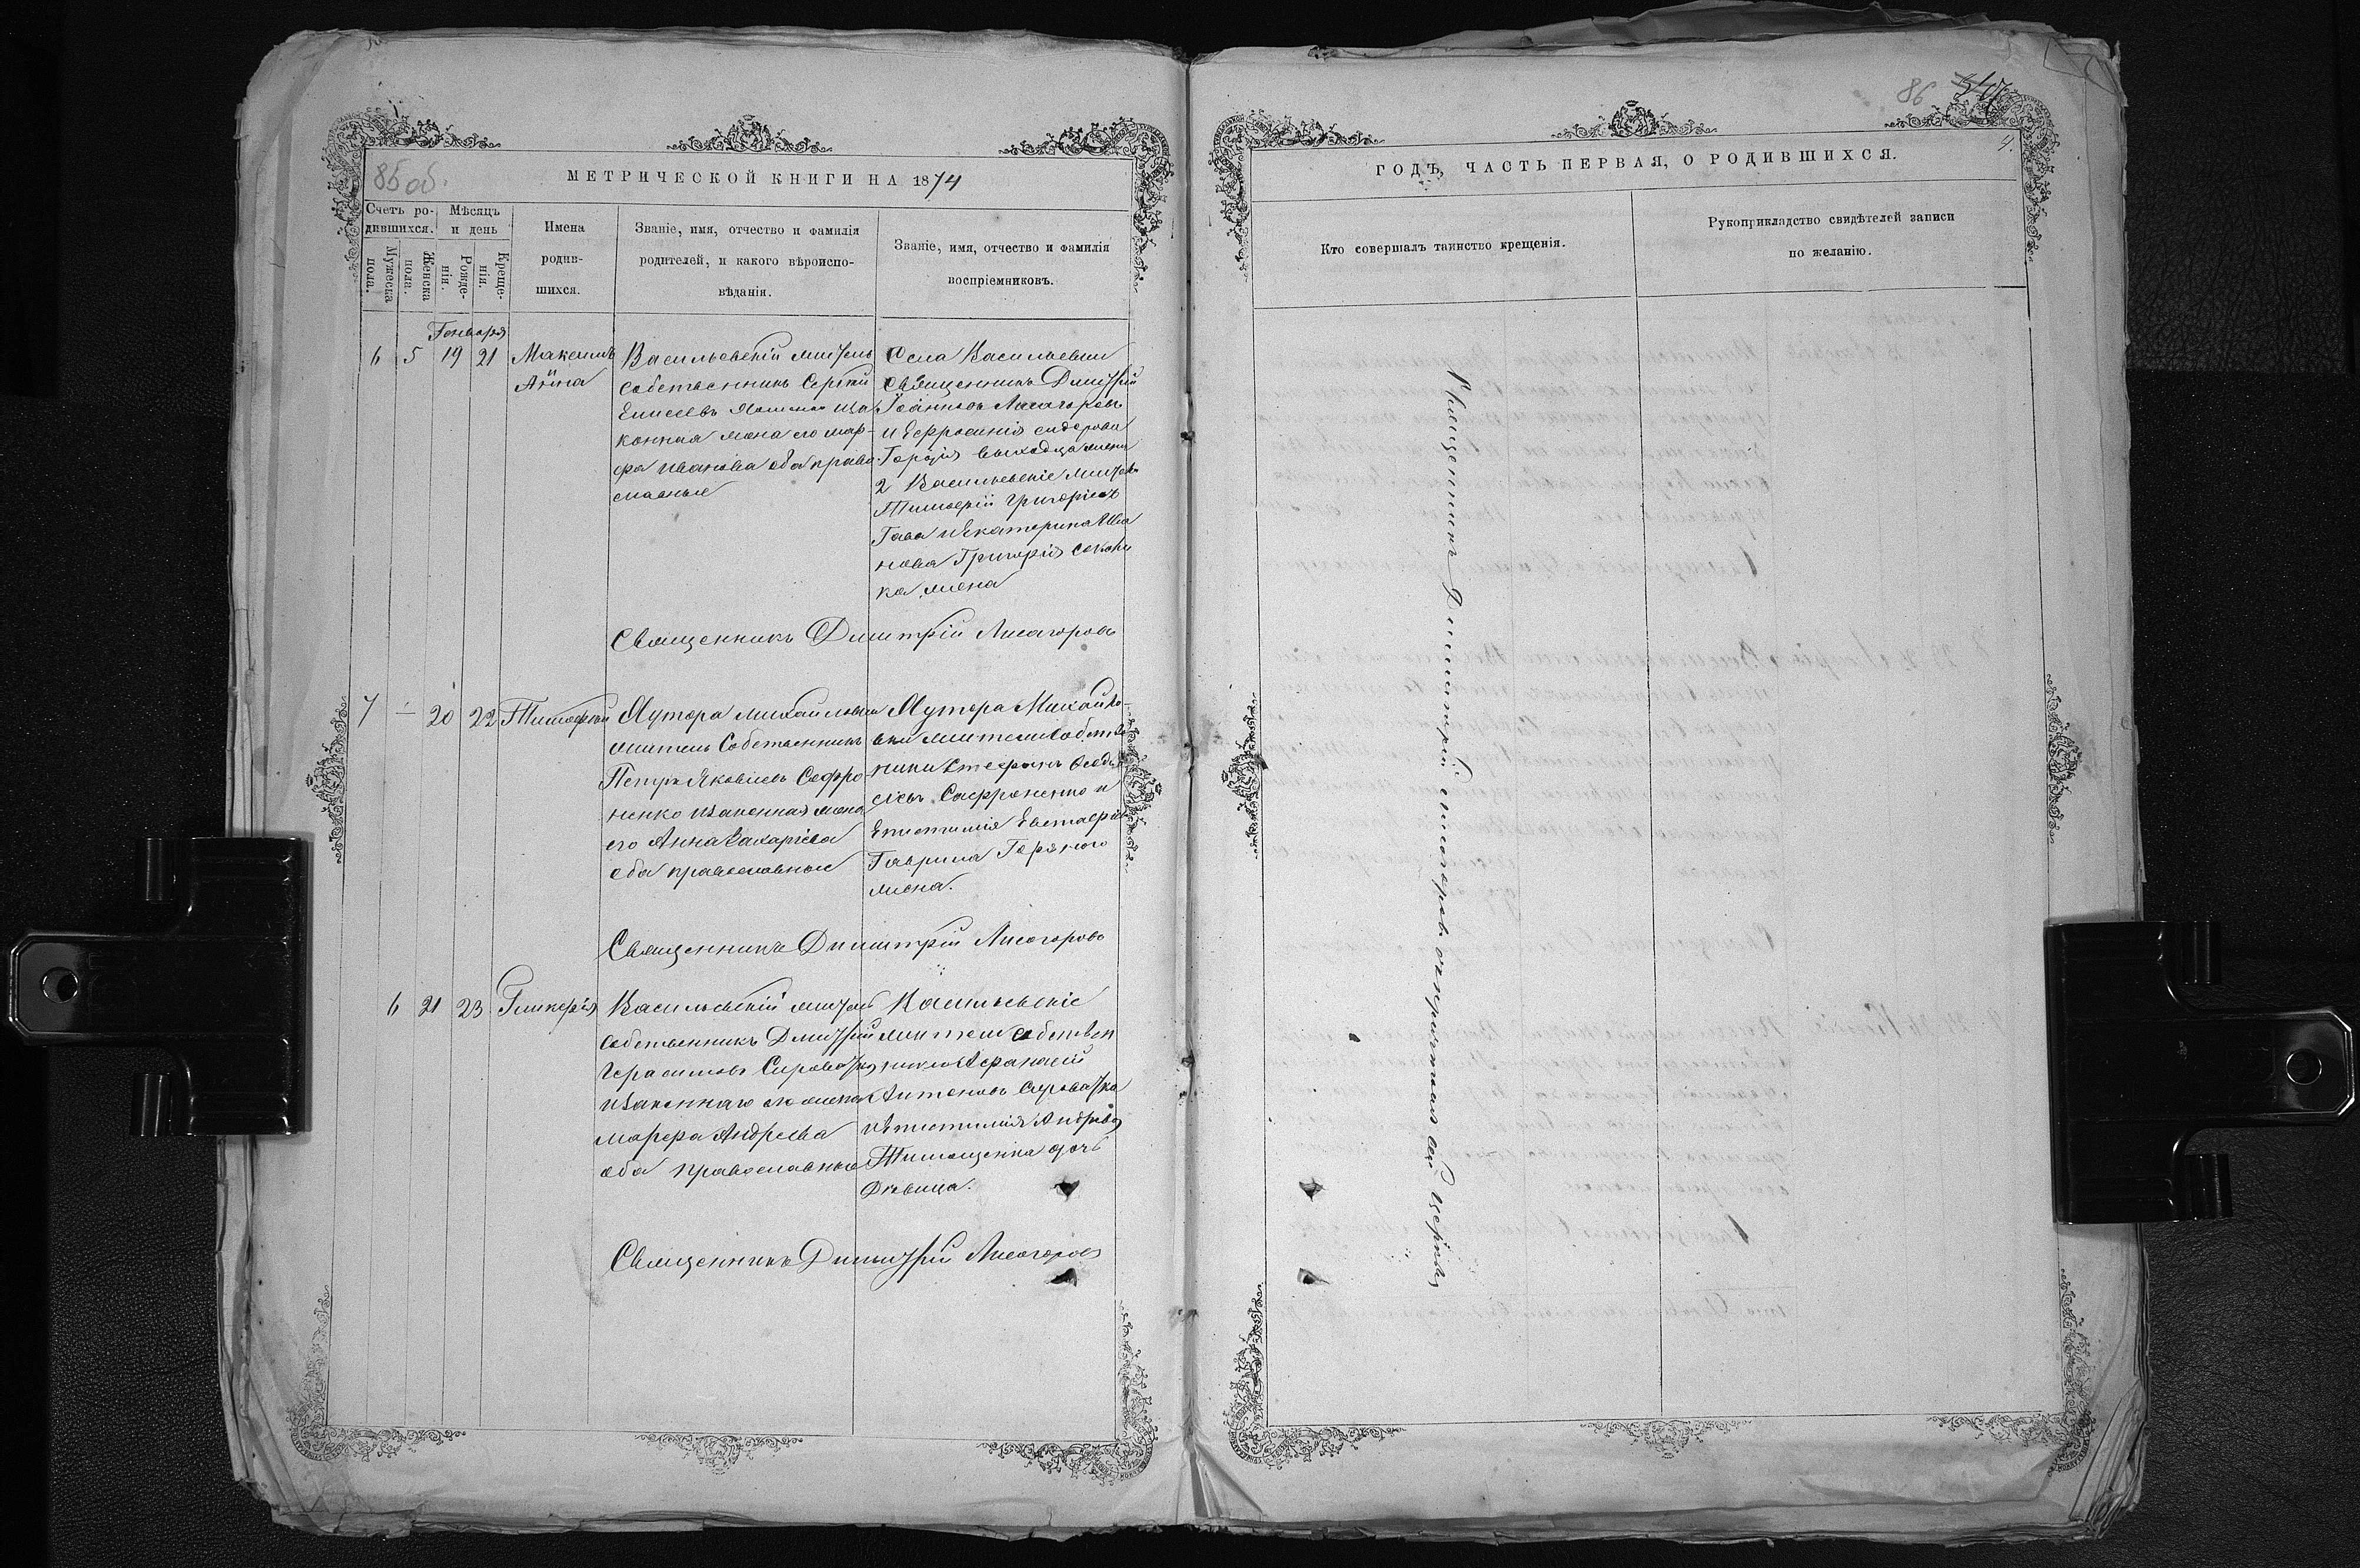 85 об.
МЕТРИЧЕСКОЙ КНИГИ НА 1874
Счетъ ро-
дившихся.
Мужеска
пола.
Женска
пола.
Мѣсяцъ
и день
Рожде-
нія.
Креще-
нія.
Имена
родив-
шихся.
Званіе, имя, отчество и фамилія
родителей, и какого вѣроиспо-
вѣданія.
Званіе, имя, отчество и фамилія
воспріемниковъ.
Генваря
6 5 19 21
Максимъ
Анна
Васильевскій житель
собственникъ Сергѣй
Елисеевъ и за
конная жена его Мар-
фа Иванова оба право
славные
Села Васильевки
Священникъ Димитрій
Іоанновъ Лисогоровъ
и Ефросинія Сидорова
жена
2 Васильевскіе жители
Тимофей Григоріевъ
и Екатерина Ива
нова Григорія
ка жена
Священникъ Димитрій Лисогоровъ
7 - 20 22
Тимофей
Хутора Михайловки
житель собственникъ
Петръ Яковлевъ Софро
ненко и законная жена
его Анна Захаріева
оба православные
Хутора Михайло-
вки жители собстве
ники Стефанъ
Софроненко и
Епистимія Евстафіева
Гавріила
жена.
Священникъ Димитрій Лисогоровъ
6 21 23
Гликерія
Васильевскій житель
собственникъ Димитрій
Герасимовъ Сироватка
и законная его жена
Марфа Андреева
оба православные
Васильевскіе
жители собствен
ники Афанасій
Антоновъ Сироватка
и Епистимія Андреева
Тимощенка дочь
дѣвица.
Священникъ Димитрій Лисогоровъ
86
4.
ГОДЪ, ЧАСТЬ ПЕРВАЯ, О РОДИВШИХСЯ.
Кто совершалъ таинство крещенія.
Рукоприкладство свидѣтелей записи
по желанію.
Священникъ Димитрій Лисогоровъ